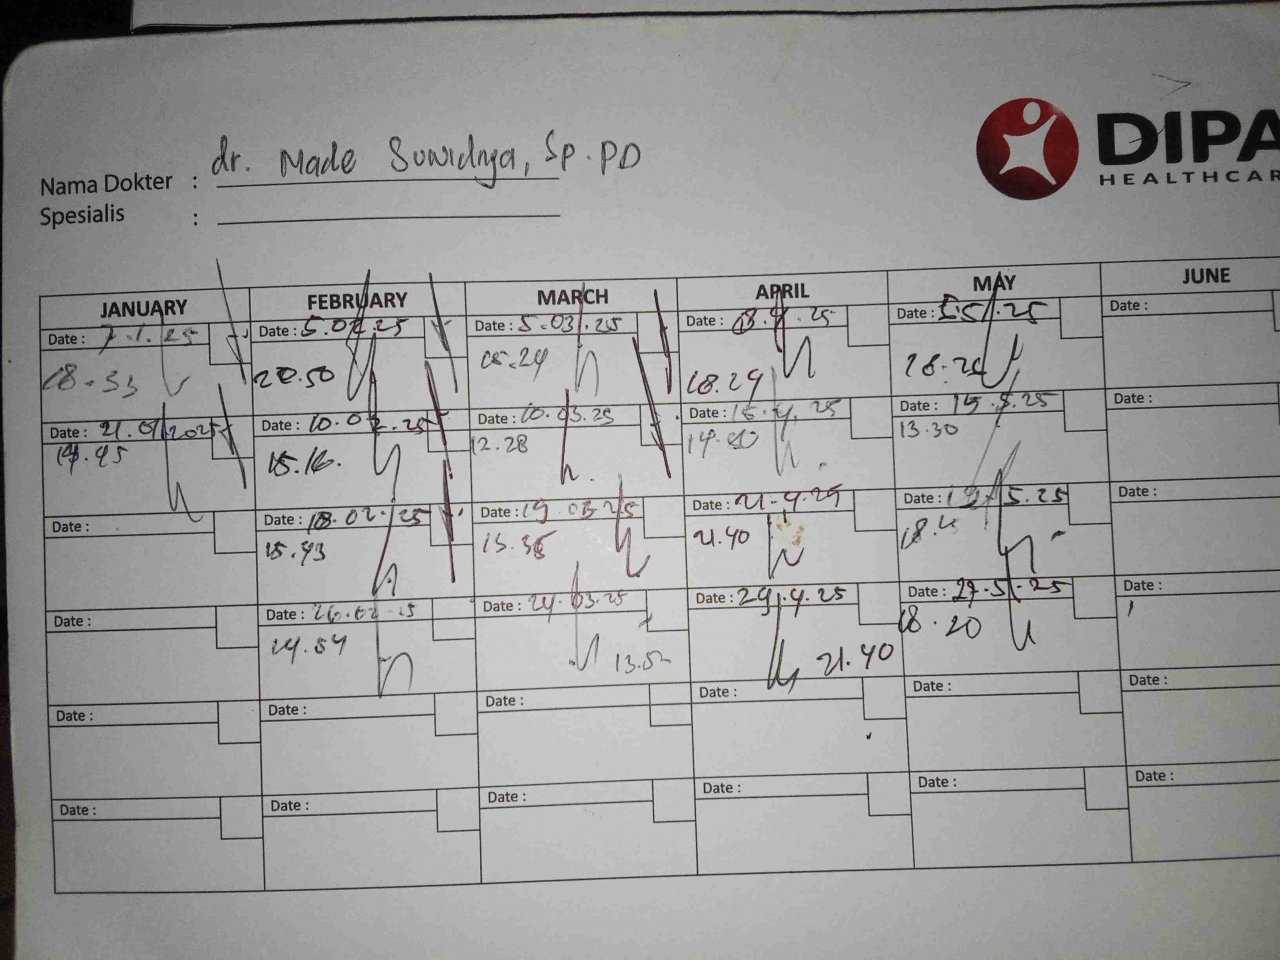 DIPA
HEALTHCAR
Nama Dokter : dr. Made Suwidnya, Sp.PD
Spesialis :
JANUARY FEBRUARY MARCH APRIL MAY JUNE
Date : 7.1.25 Date : 5.02.25 Date : 5.03.25 Date : 25 Date : 5.5.25 Date :
18.33 20.50 15.24 18.29
Date : 21.01.2025 Date : 10.02.25 Date : 10.03.25 Date : 15.4.25 Date : 15.5.25 Date :
15.16. 12.28 13.30
Date : Date : 18.02.25 Date : 19.03.25 Date : 21.4.25 Date : 5.25 Date :
15.43 21.40
Date : Date : 26.02.25 Date : 24.03.25 Date : 29.4.25 Date : 27.5.25 Date :
14.54 21.40 18.20
Date : Date : Date : Date : Date : Date :
Date : Date : Date : Date : Date : Date :